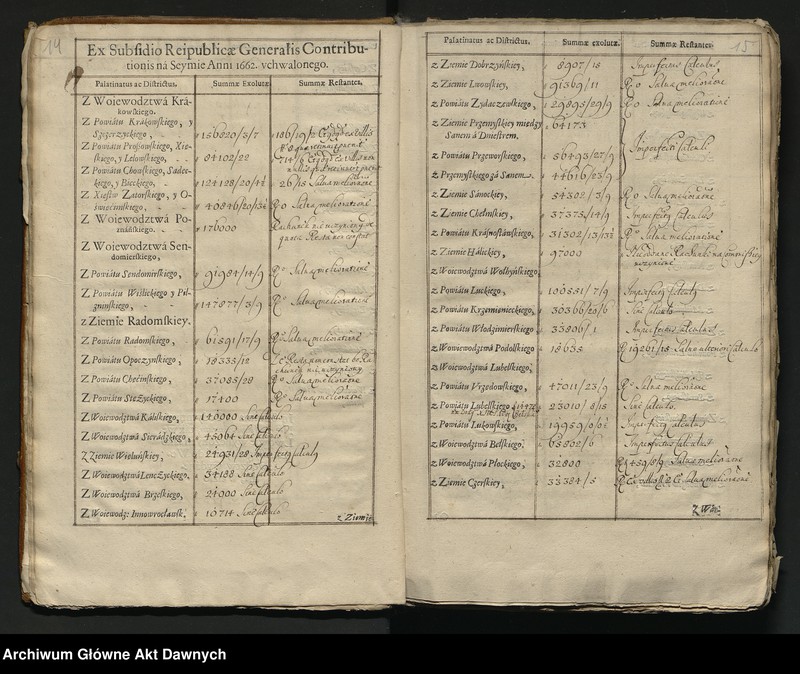 14
Ex Subsidio Reipublicæ Generalis Contribu-
tionis ná Seymie Anni 1662. vchwalonego.
Palatinatus ac Districtus. Summæ Exolutæ Summæ Restantes.
Z Woiewodztwá Krá-
kowskiego.
Z Powiátu Krákowskiego, y
Szczerzyckiego,
Z Powiátu Proszowskiego, Xię-
skiego, y Lelowskiego, 84102/22
Z Powiátu Chowskiego, Sądec-
kiego, y Bieckiego,
Z Xięstw Zatorskiego, y O-
święcimskiego, R o Salua melioratione
Z Woiewodztwá Po-
znáńskiego. 176000
Z Woiewodztwá Sen-
domierskiego,
Z Powiátu Sendomirskiego, 91984/14/9 Ro Salua melioratione
Z Powiátu Wiślickiego y Pil-
znińskiego, 147877/3/9 Ro Salua melioratione
z Ziemie Radomskiey.
Z Powiátu Radomskiego, 61591/17/9 Ro Salua melioratione
Z Powiátu Opoczyńskiego, 18335/12
Z Powiátu Chęcińskiego, 37085/28 Ro Salua melioratione
Z Powiátu Stężyckiego, 17400 Ro Salua melioratione
Z Woiewodztwá Káliskiego, 140000 Sine calculo
Z Woiewodztwá Sierádzkiego, 45064 Sine calculo
Z Ziemie Wieluńskiey, 24931/28 Imperfectus calculus
Z Woiewodztwá Lenczyckiego, 34188 Sine calculo
Z Woiewodztwá Brzeskiego, 24000 Sine calculo
Z Woiewodz: Innowrocławsk. 16714 Sine calculo
z Ziemie
15
Palatinatus ac Districtus. Summæ exolutæ. Summæ Restantes.
z Ziemie Dobrzyńskiey, 8907/18 Imperfectus Calculus
z Ziemie Lwowskiey, 91369/11 R o Salua melioratione
z Powiátu Zydaczewskiego, 29895/29/9 R o Salua melioratione
z Ziemie Przemyskiey między
Sanem á Dniestrem, 64173
z Powiátu Przeworskiego, 56493/27/9
z Przemyskiego zá Sanem, 44616/23/9
z Ziemie Sánockiey, 54302/3/9 R o Salua melioratione
z Ziemie Chełmskiey, 37375/14/9 Imperfectus Calculus
z Powiátu Krásnostáwskiego, Ro Salua melioratione
z Ziemie Hálickiey, 97000
z Woiewodztwá Wołhyńskiego,
z Powiátu Luckiego, 100581/7/9
z Powiátu Krzemienieckiego, 30366/20/6 Sine calculo
z Powiátu Włodzimirskiego 35806/1 Imperfectus calculus
z Woiewodztwá Podolskiego 18635
z Woiewodztwá Lubelskiego.
z Powiátu Vrzędowskiego, 47011/23/9 Ro Salua melioratione
z Powiátu Lubelskiego 23010/8/15 Sine calculo
z Powiátu Lukowskiego, Imperfectus calculus
z Woiewodztwá Belskiego. 65802/6 Imperfectus calculus
z Woiewodztwá Płockiego, 32800
z Ziemie Czerskiey, 33384/5
Z Wár:
Archiwum Główne Akt Dawnych